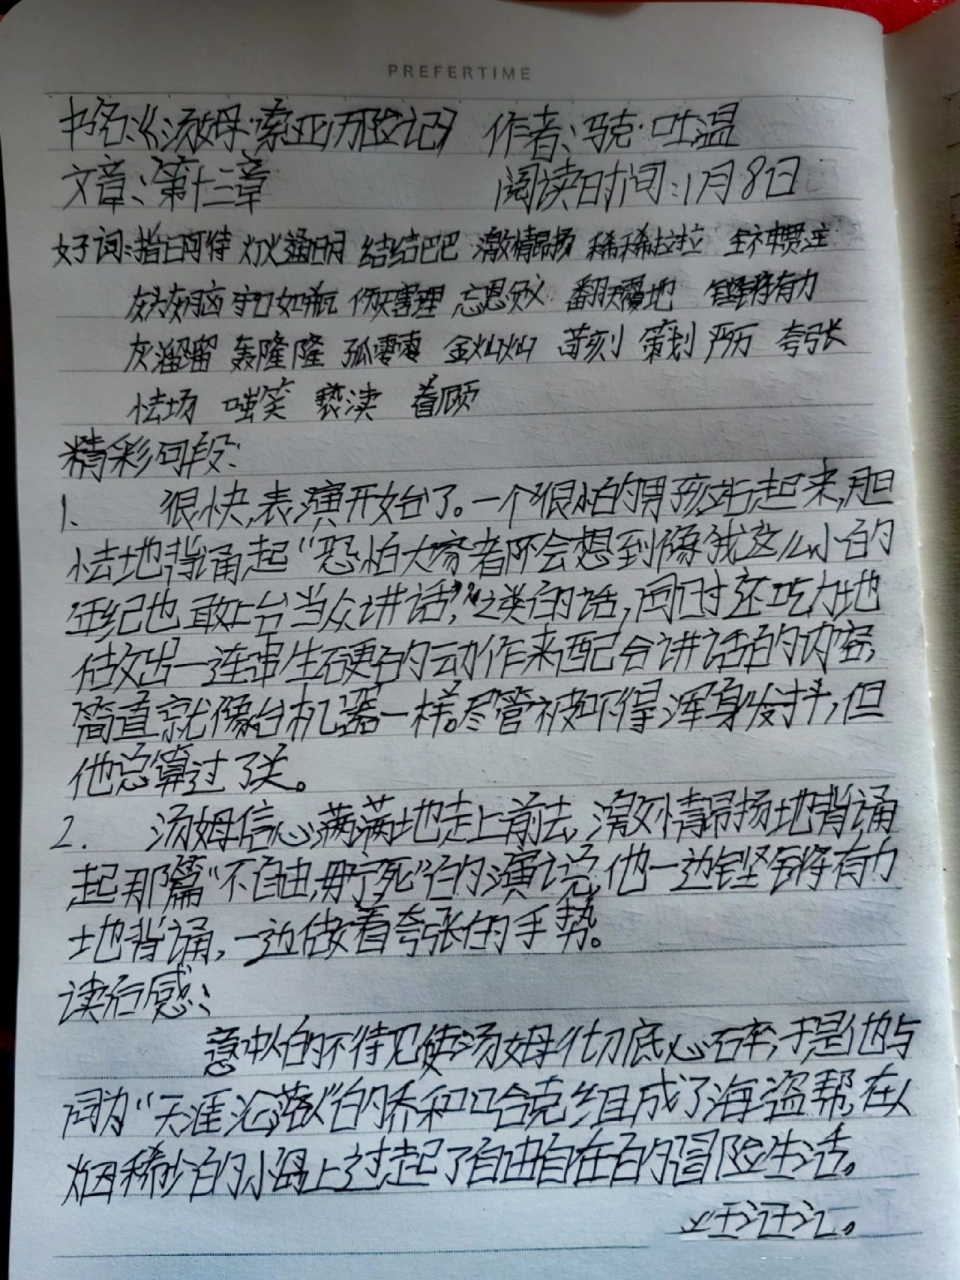 PREFERTIME
书名:《汤姆·索亚历险记》 作者:马克·吐温
文章:第十三章 阅读时间:1月8日
好词:指日可待 灯火通明 结结巴巴 激情昂扬 稀稀拉拉 全神贯注
灰头灰脑 守口如瓶 伤天害理 忘恩负义 翻天覆地 铿锵有力
灰溜溜 轰隆隆 孤零零 金灿灿 苛刻 策划 严厉 夸张
怯场 嗤笑 亵渎 着顾
精彩句段:
1. 很快,表演开始了。一个很小的男孩站起来,胆
怯地背诵起“恐怕大家都不会想到像我这么小的
年纪也敢上台当众讲话”之类的话,同时还吃力地
做出一连串生硬的动作来配合讲话的内容,
简直就像台机器一样。尽管被吓得浑身发抖,但
他总算过了关。
2. 汤姆信心满满地走上前去,激情昂扬地背诵
起那篇“不自由,毋宁死”的演说,他一边铿锵有力
地背诵,一边做着夸张的手势。
读后感:
意中人的不待见使汤姆彻底心碎,于是他与
同为“天涯沦落人”的乔和哈克组成了海盗帮,在人
烟稀少的小岛上过起了自由自在的冒险生活。